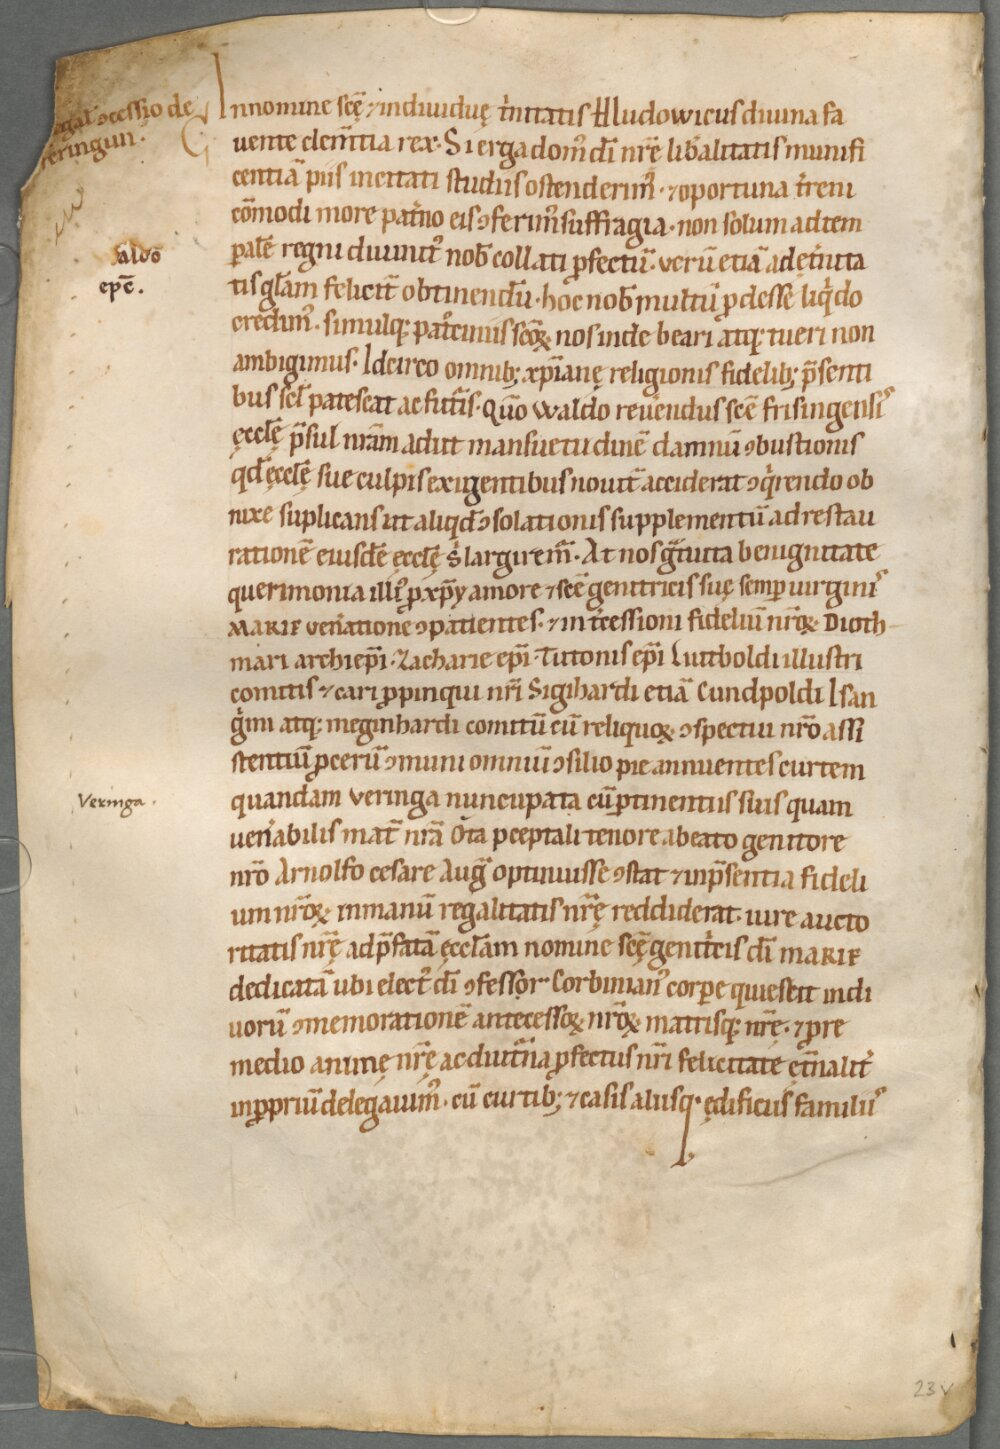 gał ɔcessio de
veringun.
aldo
ep̄c.
Innomine sc̄ę ⁊ indiuiduę t'nitatis Hludowicus diuina fa
uente clem̄tia rex. Si erga dom᷒ dī nr̄e lib̄alitatis munifi
centiā piis incitati studiis ostenderim᷒. ⁊ oportuna t'reni
cōmodi more pat'no eis ɔferim᷒ suffragia. non solum ad tem
ꝑałe regni diuinit᷒ nob̄ collati ꝓfectū. uerū etiā ad et'nita
tis gl̄am felicit̄ obtinendā. hoc nob̄ multū ꝓdesse liq'do
credim᷒. simulq; pat'ciniis sc̄oꝝ nos inde beari atq; tueri non
ambigimus. Idcirco omnib; xp̄ianę religionis fidelib; p̄senti
bus scł pateseat ac futur̄is. Qūo waldo reuendus sc̄e frisingensi᷒
ęccłę p̄sul nr̄am adiit mansuetudinē damnū ɔbustionis
qd̄ ęccłę sue culpis exigentibus nouit̄ acciderat ɔq'rendo ob
nixe suplicans ut aliqd̄ ɔsolationis supplementū ad restau
rationē eiusdē ęccłę s' largirem̄. At nos g'tuita benignitate
querimonia illi᷒ ꝓ xp̄y amore ⁊ sc̄e genitricis suę semꝑ uirgini᷒
MARIE uen'atione ɔpatientes. ⁊ int'cessioni fideliū nr̄oꝝ Dioth
mari archiep̄i. Zacharie ep̄i. Tutonis ep̄i Luitboldi illustri
comitis ⁊ cari ꝓpinqui nr̄i Sigihardi etiā Cundpoldi Isan
g'mi atq; meginhardi comitū cū reliquoꝝ ɔspectui nr̄o assi
stentiū ꝓcerū ɔmuni omniū ɔsilio pie annuentes curtem
Veringa.
quandam veringa nuncupata cū ꝑtinentiis suis quam
uen'abilis mat̄ nr̄a Ōta p̄ceptali tenore a beato genitore
nr̄o Arnolfo cesare Aug̃ optinuisse ɔstat ⁊ inp̄sentia fideli
um nr̄oꝝ inmanū regalitatis nr̄ę reddiderat. iure aucto
ritatis nr̄ę ad p̄fatā ęccłam nomine sc̄ę genit'cis dī MARIE
dedicatā ubi elect᷒ dī ɔfessor Corbinian᷒ corpe quiescit in di
uorū ɔmemorationē antecessoꝝ nr̄oꝝ matrisq; nr̄ę. ⁊ ꝓ re
medio animę nr̄ę ac diut̄na ꝓfectus nr̄i felicitate et̄nalit'
inꝓpriū delegauim᷒. cū curtib; ⁊ casis aliisq. ędificiis familii᷒
23v